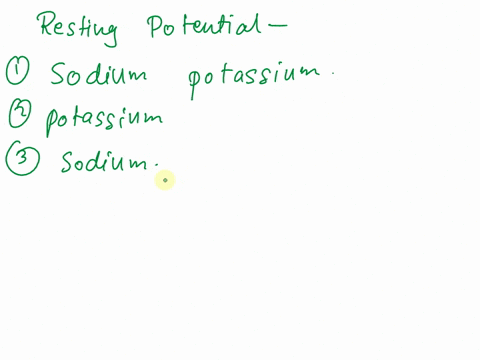 Resting Potential —
① Sodium potassium.
② potassium
③ Sodium.